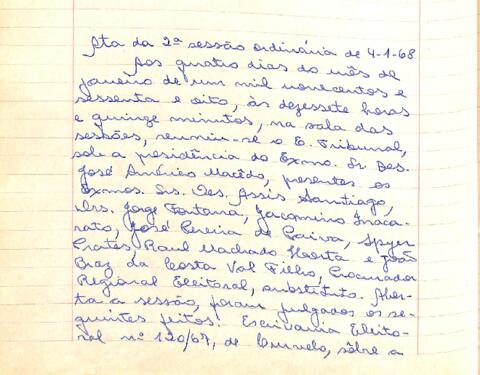 Ata da 2ª sessão ordinária de 4-1-68
Aos quatro dias do mês de
janeiro de um mil novecentos e
sessenta e oito, às dezessete horas
e quinze minutos, na sala das
sessões, reuniu-se o E. Tribunal,
sob a presidência do Exmo. Sr. Des.
José Américo Macêdo, presentes os
Exmos. Srs. Des. Assis Santiago,
Drs. Jorge Fontana, Jacomino Inaca-
rato, José Pereira de Paiva, Spyer
Prates, Raul Machado Horta e João
Braz da Costa Val Filho, Procurador
Regional Eleitoral, substituto. Aber-
ta a sessão, foram julgados os se-
guintes feitos: Escrivania Eleito-
ral nº 120/67, de Curvelo, sôbre a